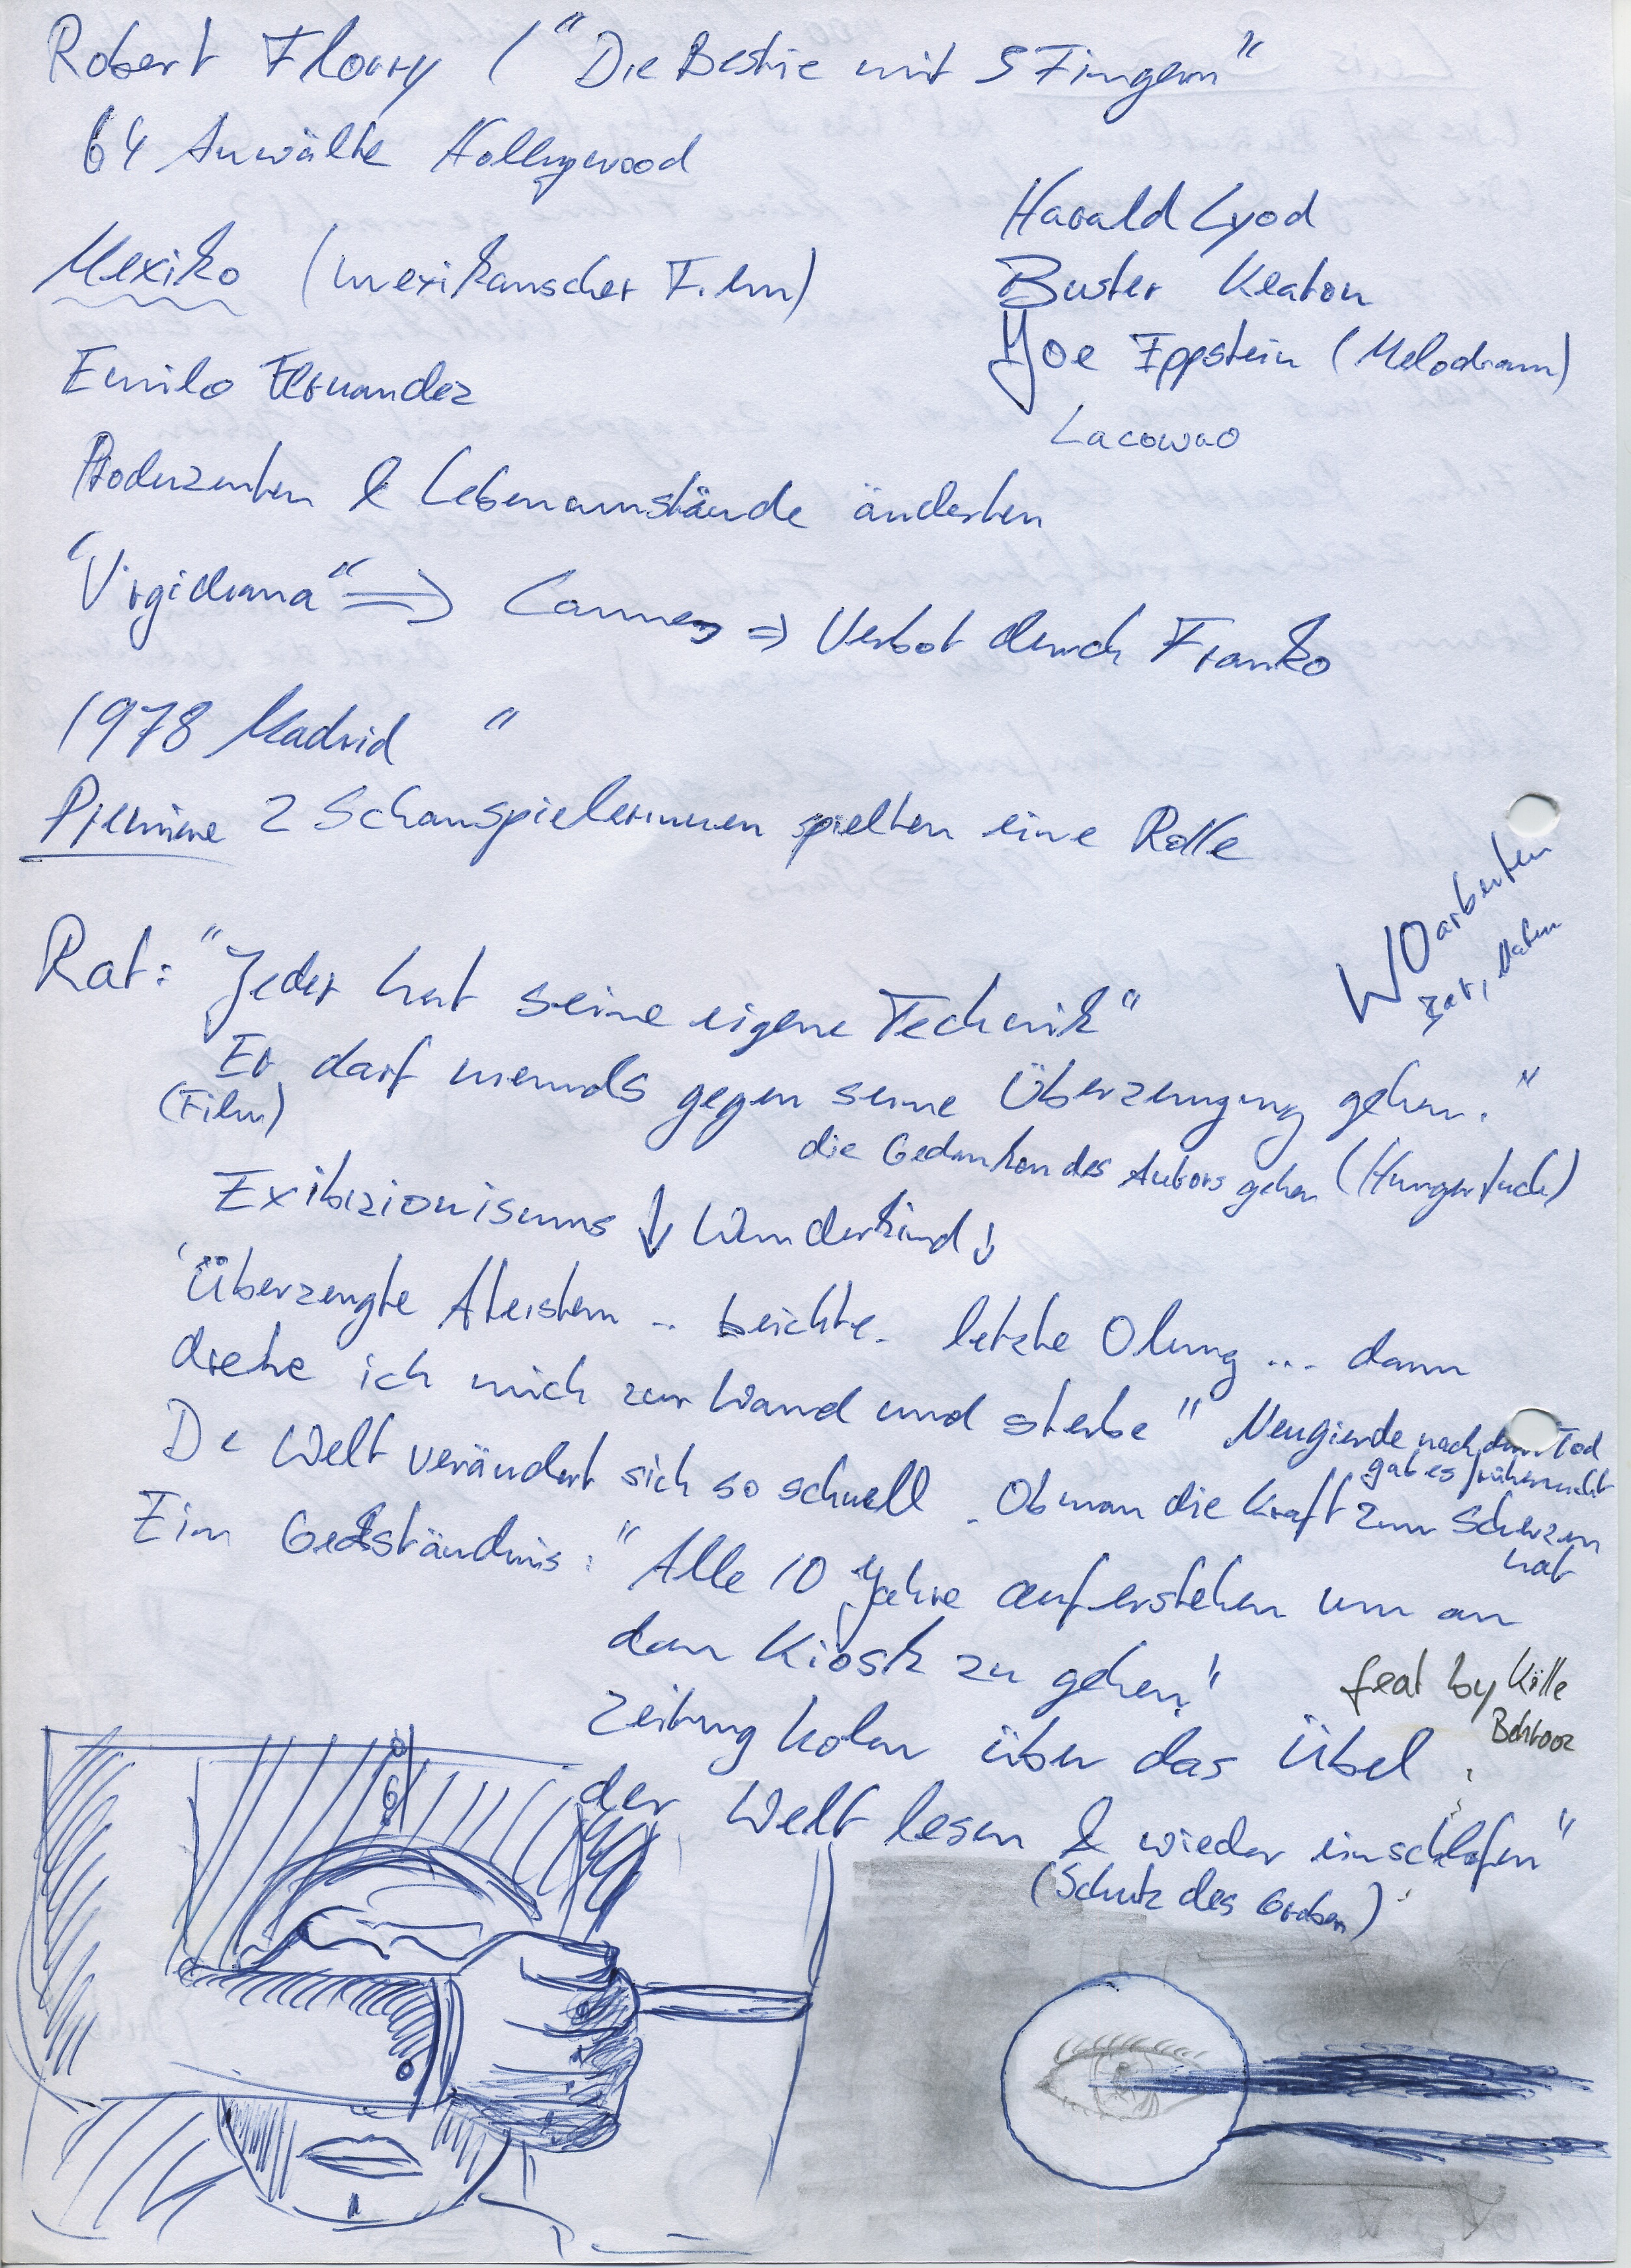 Robert Floory ("Die Bestie mit 5 Fingern"
64 Anwälte Hollywood
Harald Lyod
Mexiko (mexikanscher Film)
Buster Keaton
Joe Eppstein (Melodram)
Emilo Fernandez
Lacowao
Produzenten & Lebenumstände änderten
"Virgidiana" => Cannes => Verbot durch Franko
1978 Madrid "
Premiere 2 Schauspielerinnen spielten eine Rolle
WO arbeiten
Rat: "Jeder hat seine eigene Technik"
Er darf niemals gegen seine Überzeugung gehen."
(Film)
die Gedanken des Autors gehen (Hungertuch)
Exibizionisums ↓ Wunderkind ↓
"Überzeugte Ateisten .. beichte. letzte Olung ... dann
drehe ich mich zur Wand und sterbe" Neugierde nach dem Tod
gab es früher nicht
De Welt verändert sich so schnell. Ob man die Kraft zum Scherzen
hat
Ein Geständnis: "Alle 10 Jahre auferstehen um an
den Kiosk zu gehen!
Zeitung holen über das Übel
feat by Källe
Behrooz
der Welt lesen & wieder einschlafen"
(Schutz des Grabes)